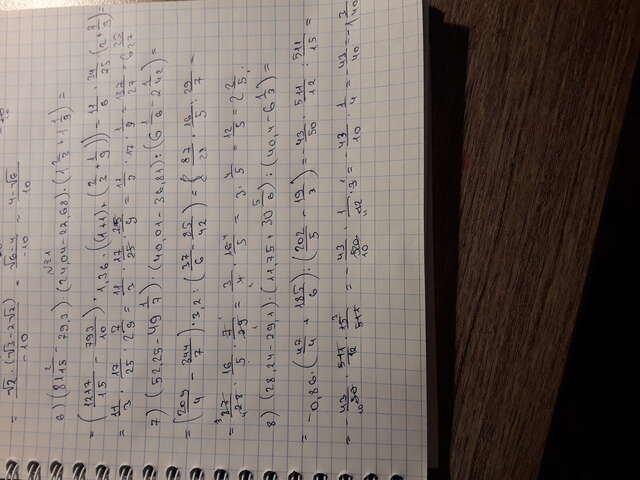 = √2 · (√3 - 2√2) / -10 = √6 - 4 / -10 = 4 - √6 / 10
6) (81 2/15 - 79,3) · (24,04 - 22,68) · (1 2/3 + 1 1/9) =
= (1217/15 - 793/10) · 1,36 · ((1+1) + (2/3 + 1/9)) = 11/6 · 34/25 (2 +
= 11/3 · 17/25 · 7/29 = 11/3 · 17/25 · 25/9 = 11/3 · 17 · 1/9 = 187/27 = 6 25/27
7) (52,25 - 49 1/7) · (40,01 - 36,81) : (6 1/6 - 2 1/42) =
= (209/4 - 344/7) · 3,2 : (37/6 - 85/42) = 87/28 · 16/5 : 29/7 =
= 87/28 · 16/5 · 7/29 = 3/4 · 16/5 = 3 · 4/5 = 12/5 = 2 2/5
8) (28,24 - 29,1) · (11,75 + 30 5/6) : (40,4 - 6 1/3) =
= -0,86 · (47/4 + 185/6) : (202/5 - 19/3) = -43/50 · 511/12 : 511/15 =
= -43/50 · 511/12 · 15/511 = -43/50 · 1/12 · = -43/10 · 1/4 = -43/40 = -1 3/40